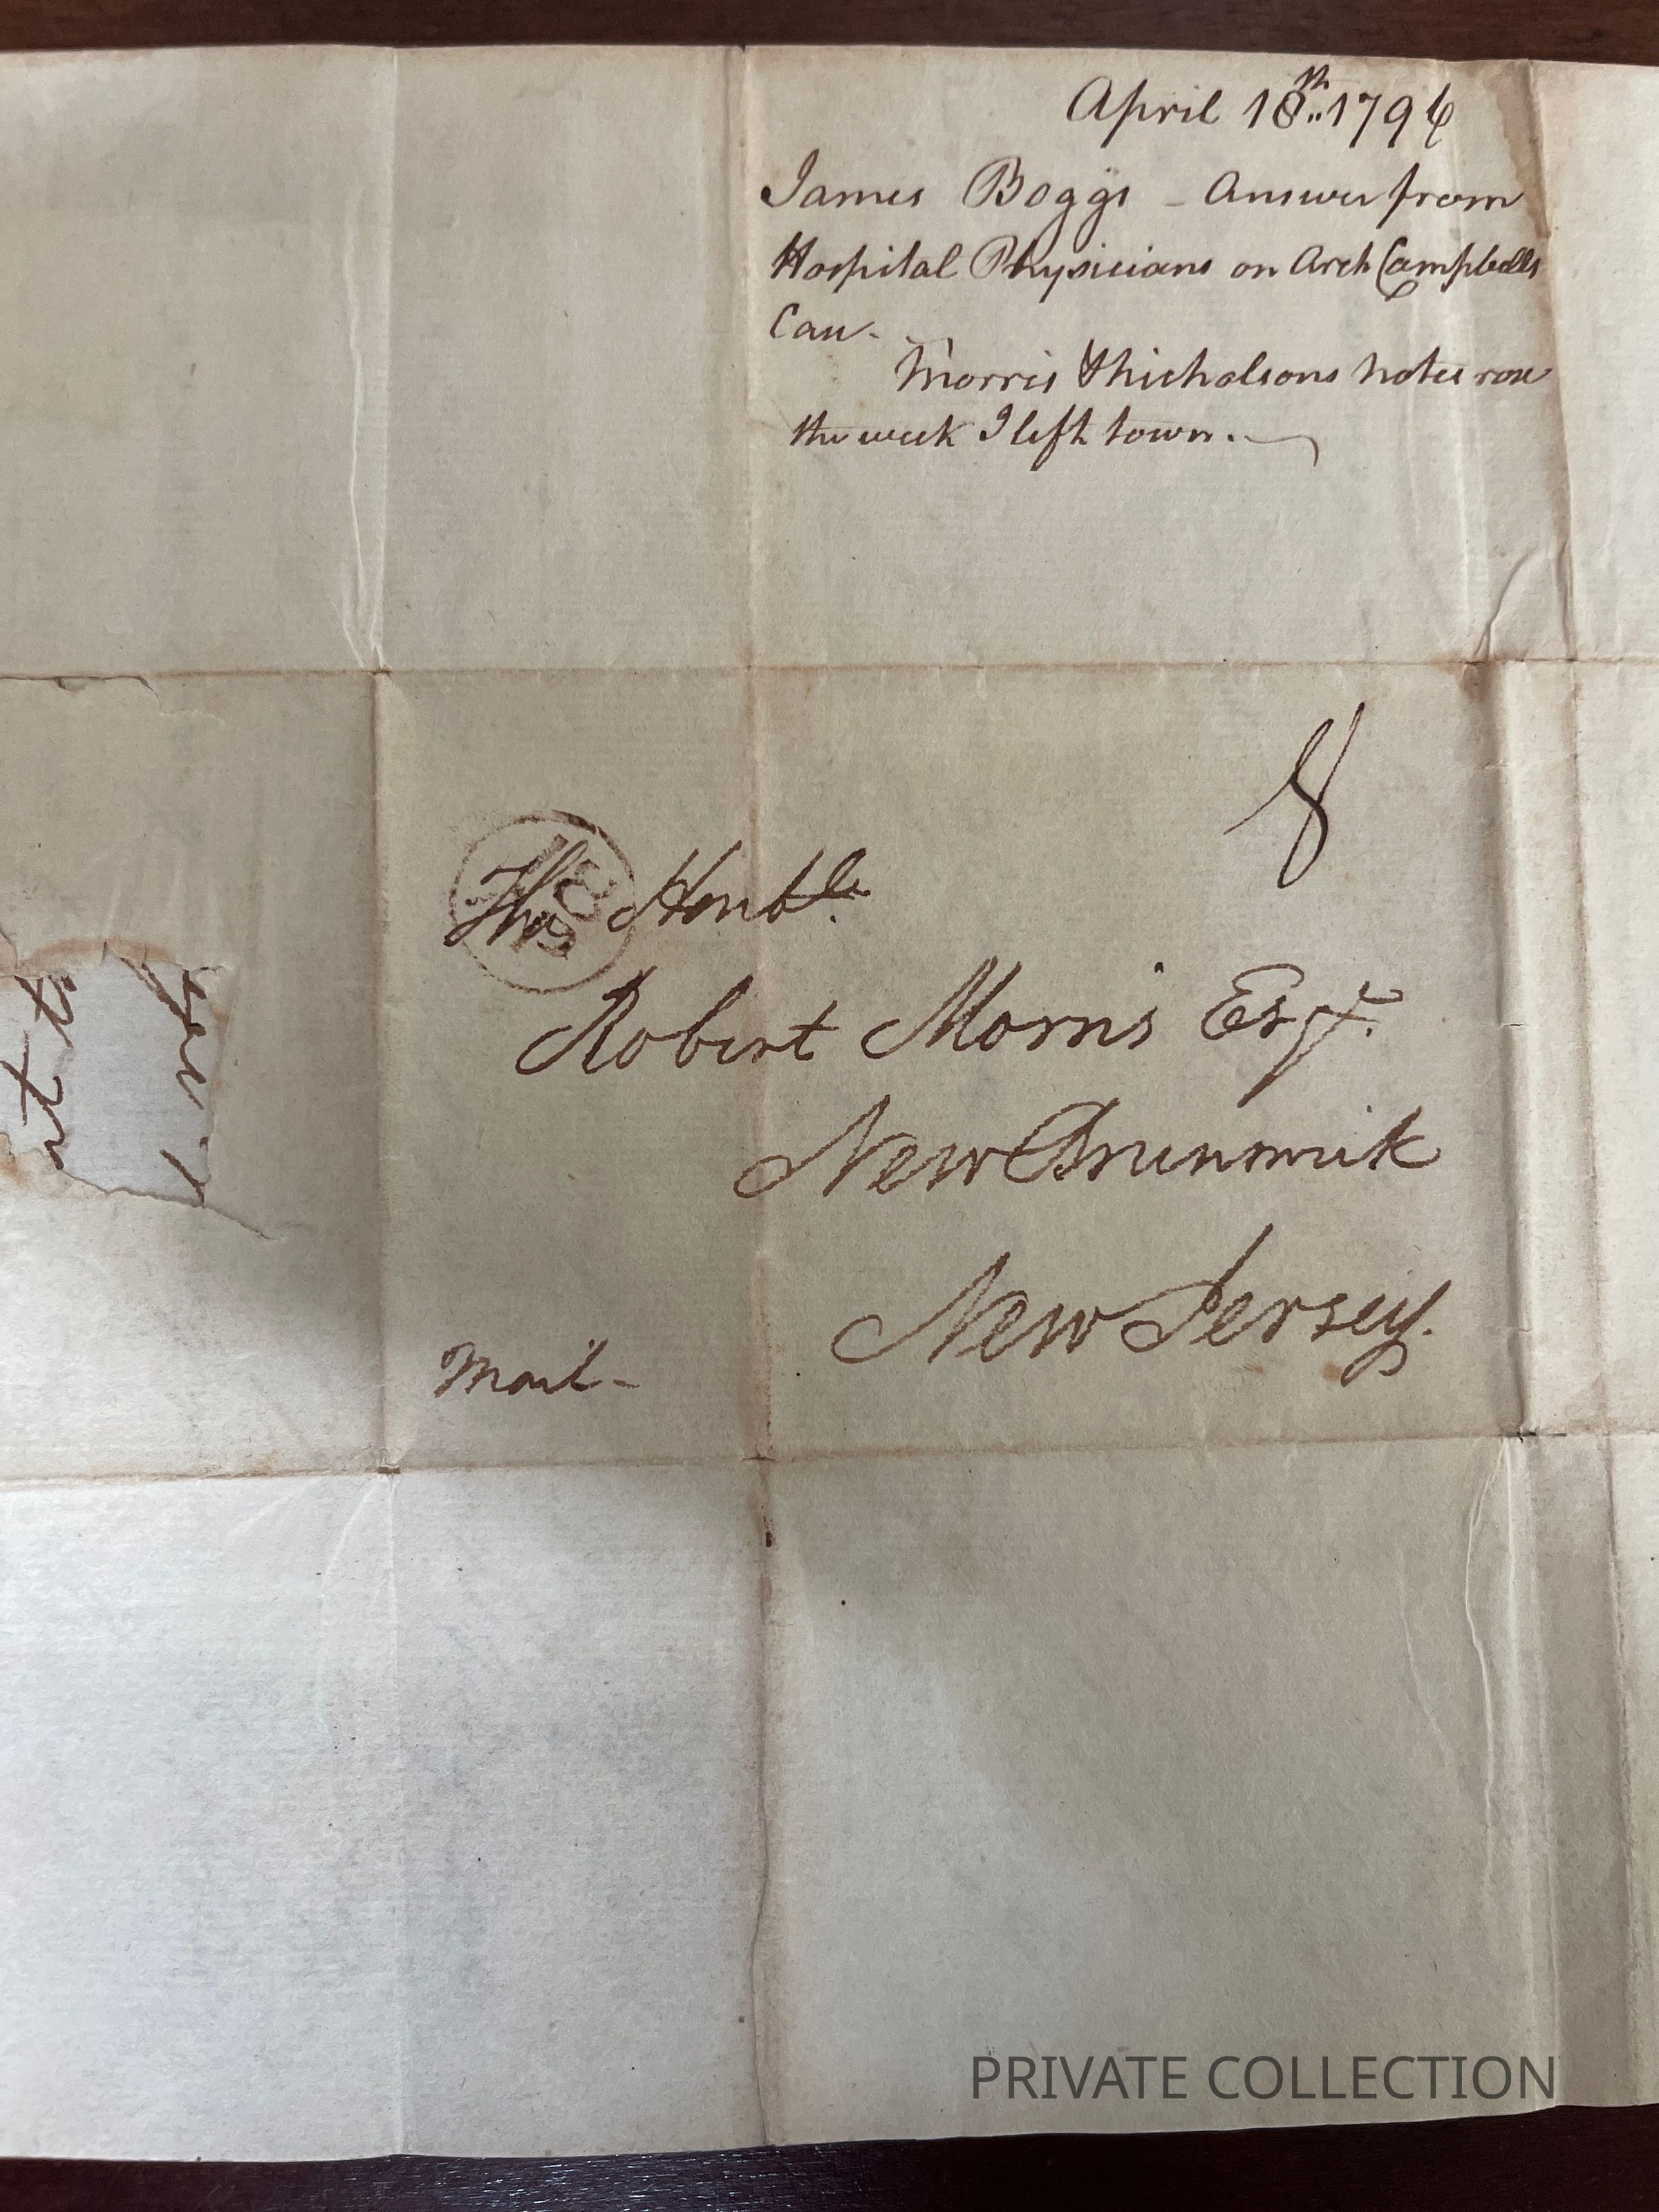 April 18th 1796
James Boggs - Answer from
Hospital Physicians on Arch Campbells
Case.
Morris & Nicholsons notes rose
the week I left town.
8
The Honble.
Robert Morris Esqr.
New Brunswick
New Jersey.
Mail -
PRIVATE COLLECTION